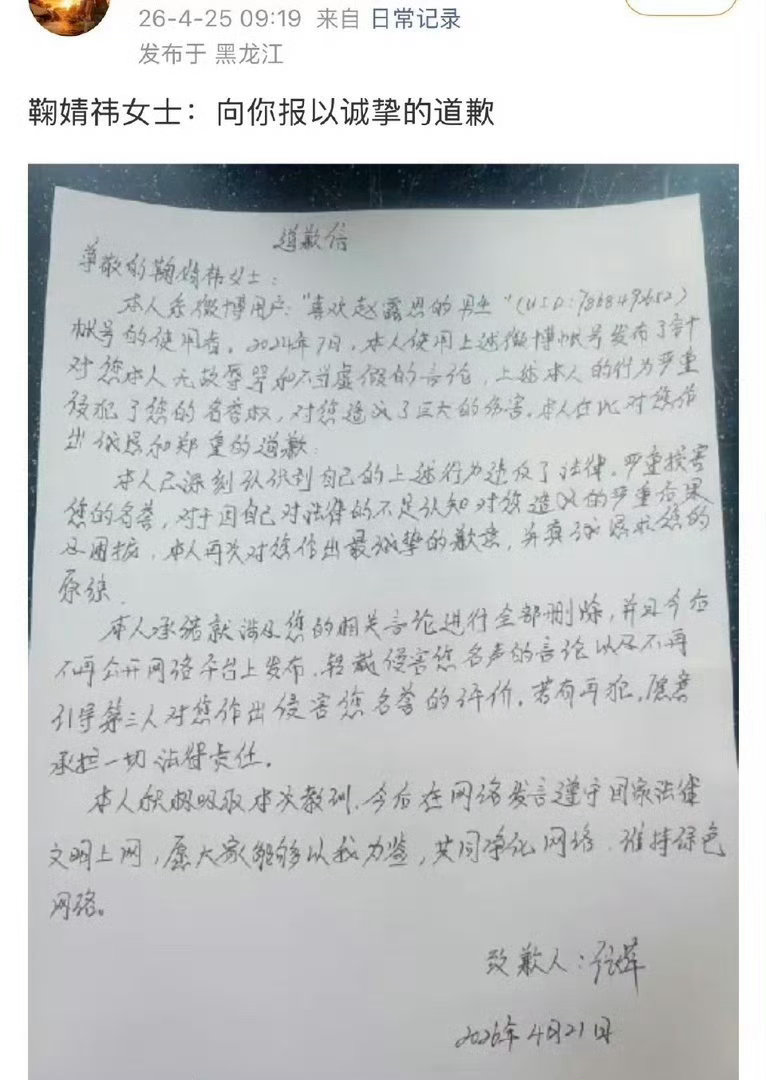 26-4-25 09:19 来自 日常记录
发布于 黑龙江
鞠婧祎女士：向你报以诚挚的道歉
道歉信
尊敬的鞠婧祎女士：
本人系微博用户："喜欢赵露思的男生"(UID:7868492652)
帐号的使用者。2024年7月，本人使用上述微博帐号发布了针
对您本人无故辱骂和不当虚假的言论，上述本人的行为严重
侵犯了您的名誉权，对您造成了巨大的伤害。本人在此对您作
出诚恳和郑重的道歉
本人已深刻认识到自己的上述行为违反了法律，严重损害
您的名誉，对于因自己对法律的不足认知对您造成的严重后果
及困扰，本人再次对您作出最诚挚的歉意，并真诚恳求您的
原谅
本人承诺就涉及您的相关言论进行全部删除，并且今后
不再公开网络平台上发布、转载侵害您名声的言论以及不再
引导第三人对您作出侵害您名誉的评价。若有再犯，愿意
承担一切法律责任。
本人积极吸取本次教训，今后在网络发言遵守国家法律
文明上网，愿大家能够以我为鉴，共同净化网络，维持绿色
网络。
致歉人：
2026年4月21日